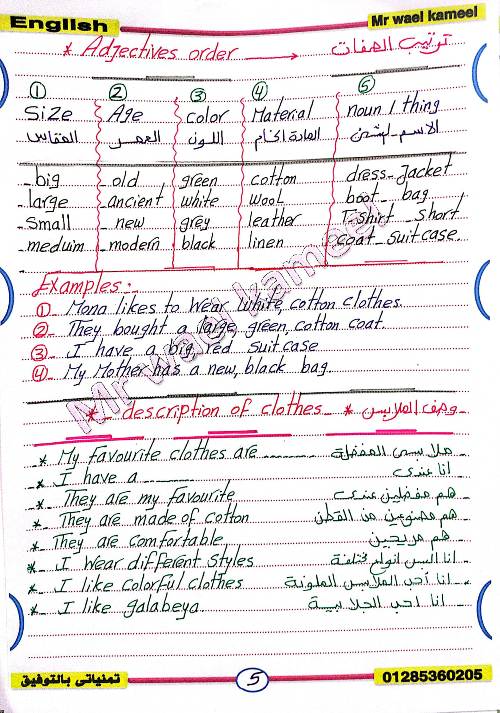 English Mr wael kameel
* Adjectives order → ترتيب الصفات
① ② ③ ④ ⑤
Size Age color Material noun / thing
المقاس العمر اللون المادة الخام الاسم - الشئ
- big - old green cotton dress - Jacket
- large - ancient white wool boot - bag
- Small - new grey leather T-shirt - short
- meduim - modern black linen coat - suitcase.
Examples:
① Mona likes to wear white, cotton clothes.
② They bought a large, green, cotton coat.
③ I have a big, red suitcase
④ My Mother has a new, black bag.
Mr wael kameel
* description of clothes * وصف الملابس
* My favourite clothes are ........ ملابسى المفضلة
* I have a ........ انا عندى
* They are my favourite هم مفضلين عندى
* They are made of cotton هم مصنوعين من القطن
* They are comfortable هم مريحين
* I wear different styles انا البس انواع مختلفة
* I like colorful clothes انا أحب الملابس الملونة
* I like galabeya. انا احب الجلابية
تمنياتى بالتوفيق 5 01285360205